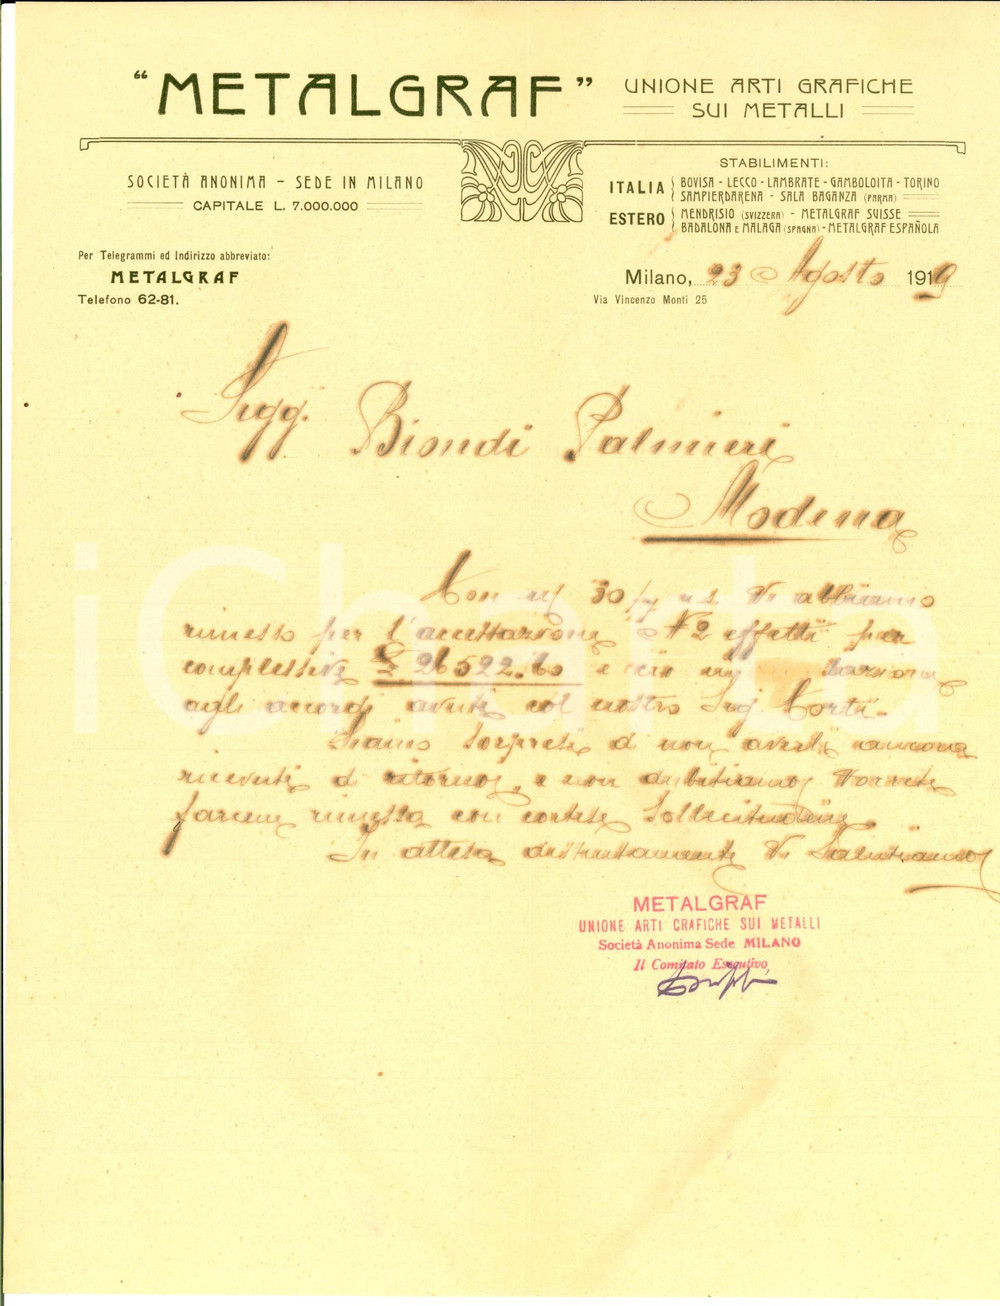 "METALGRAF"
UNIONE ARTI GRAFICHE
SUI METALLI
SOCIETÀ ANONIMA - SEDE IN MILANO
CAPITALE L. 7.000.000
STABILIMENTI:
ITALIA { BOVISA - LECCO - LAMBRATE - GAMBOLOITA - TORINO
SAMPIERDARENA - SALA BAGANZA (PARMA)
ESTERO { MENDRISIO (SVIZZERA) - METALGRAF SUISSE
BADALONA E MALAGA (SPAGNA) - METALGRAF ESPAÑOLA
Per Telegrammi ed Indirizzo abbreviato:
METALGRAF
Telefono 62-81.
Milano, 23 Agosto 1919
Via Vincenzo Monti 25
Sigg. Biondi Palmieri
Modena
Con 30 Vi abbiamo
rimesso per l'accettazione N° 2 effetti per
complessive £ 26522.60 e
agli accordi avuti col nostro Sig. Corti.
Siamo sorpresi di non averli ancora
ricevuti di ritorno, e non dubitiamo vorrete
farcene rimessa con cortese sollecitudine.
In attesa distintamente Vi salutiamo
METALGRAF
UNIONE ARTI GRAFICHE SUI METALLI
Società Anonima Sede MILANO
Il Comitato Esecutivo
iCharta